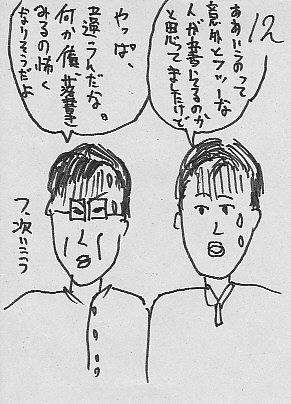 12
ああいうのって
意外とフツーな
人が書いてるのか
と思ってましたけど
やっぱ、
違うんだな。
何か俺、落書き
みるの怖く
なりそうだよ
つ、次いこう